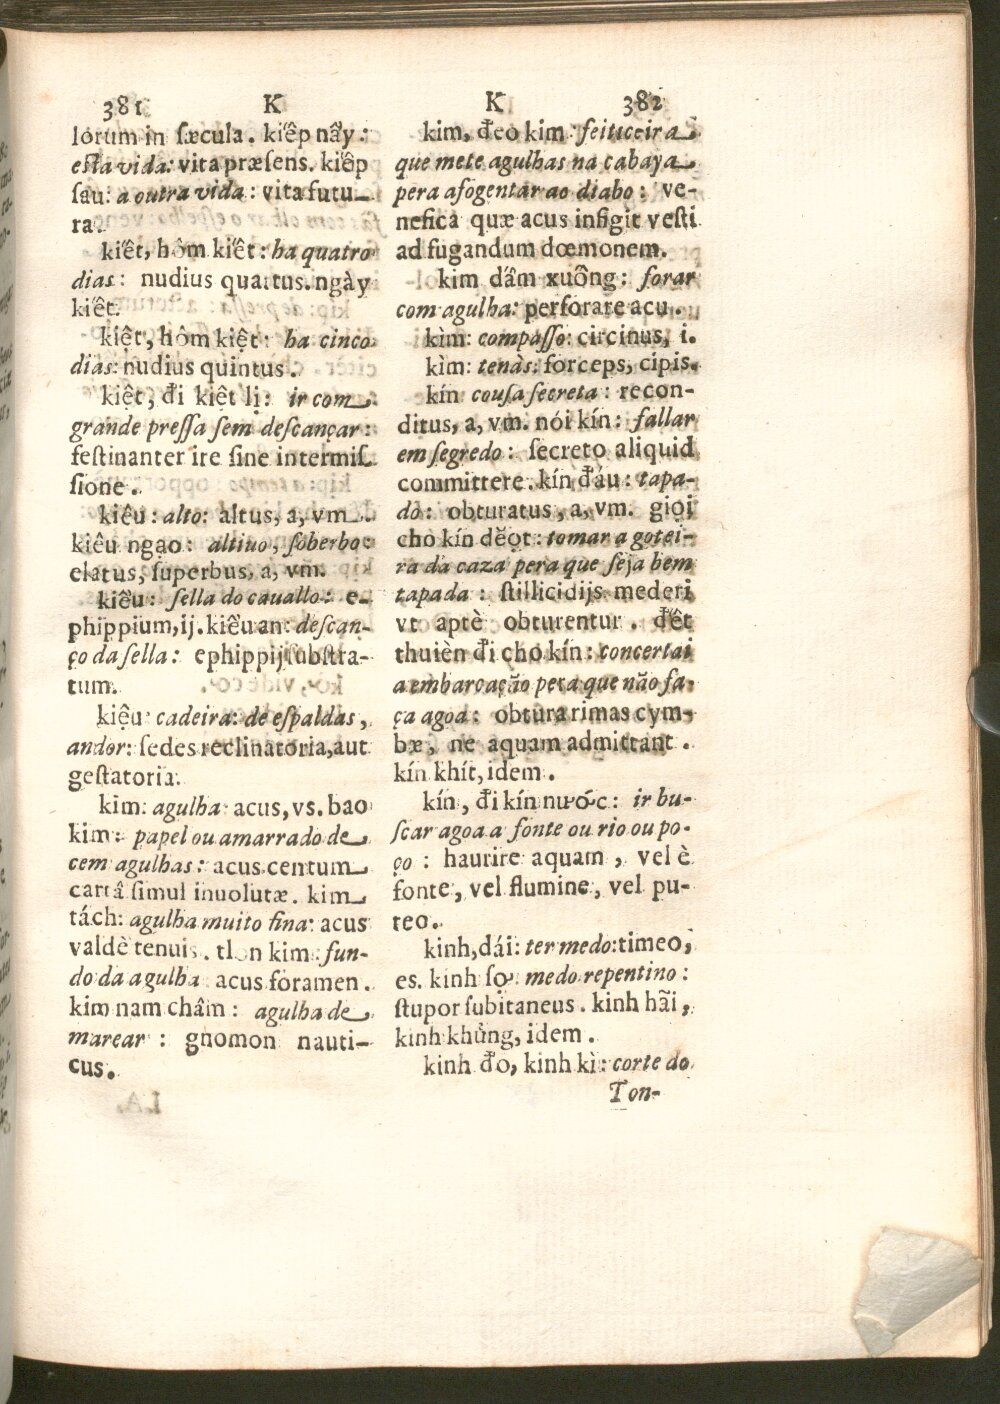 381 K
lorum in sæcula. kiếp nầy:
esta vida: vita præsens. kiếp
sau: a outra vida: vita futu-
ra.
kiết, hôm kiết: ha quatro
dias: nudius quartus. ngày
kiết.
kiệt, hôm kiệt: ha cinco
dias: nudius quintus.
kiệt, đi kiệt lị: ir com
grande pressa sem descançar:
festinanter ire sine intermis-
sione.
kiêu: alto: altus, a, vm.
kiêu ngạo: altiuo, soberbo:
elatus, superbus, a, vm.
kiều: sella do cauallo: e-
phippium, ij. kiều an: descan-
ço da sella: ephippij substra-
tum.
kiệu: cadeira: de espaldas,
andor: sedes reclinatoria, aut
gestatoria.
kim: agulha: acus, vs. bao
kim: papel ou amarrado de
cem agulhas: acus centum
cartâ simul inuolutæ. kim
tách: agulha muito fina: acus
valdè tenuis. tlon kim: fun-
do da agulha: acus foramen.
kim nam châm: agulha de
marear: gnomon nauti-
cus.
K 382
kim, đeo kim: feiticeira
que mete agulhas na cabaya
pera afogentar ao diabo: ve-
nefica quæ acus infigit vesti
ad fugandum dœmonem.
kim dấm xuống: forar
com agulha: perforare acu.
kìm: compasso: circinus, i.
kìm: tenàs: forceps, cipis.
kín cousa secreta: recon-
ditus, a, vm. nói kín: fallar
em segredo: secreto aliquid
committere. kín đáu: tapa-
do: obturatus, a, vm. giọi
cho kín dĕọt: tomar a gotei-
ra da caza pera que seja bem
tapada: stillicidijs mederi
vt aptè obturentur. đết
thuièn đi cho kín: concertai
a embarcação pera que não fa-
ça agoa: obtura rimas cym-
bæ, ne aquam admittant.
kín khít, idem.
kín, đi kín nước: ir bu-
scar agoa a fonte ou rio ou po-
ço: haurire aquam, vel è
fonte, vel flumine, vel pu-
teo.
kinh, dái: ter medo: timeo,
es. kinh sợ: medo repentino:
stupor subitaneus. kinh hãi,
kinh khủng, idem.
kinh đo, kinh kì: corte do
Ton-